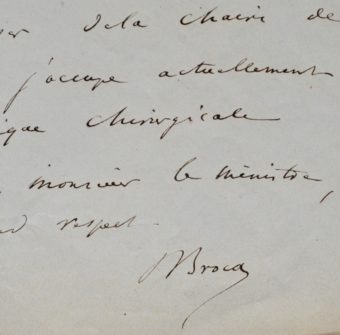 de la chaire de
j'occupe actuellement
ique chirurgicale
, monsieur le ministre,
respect.
Broca